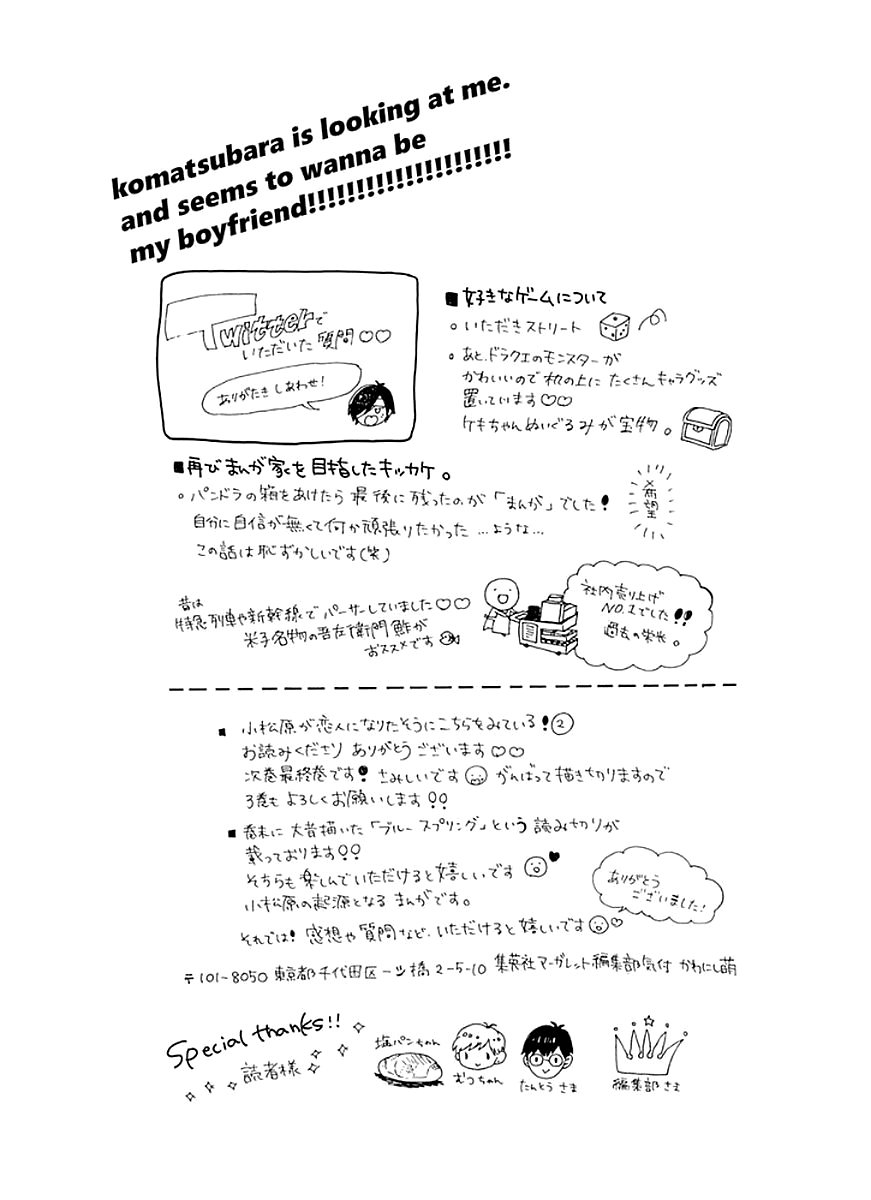 komatsubara is looking at me.
and seems to wanna be
my boyfriend!!!!!!!!!!!!!!!!!!!!!
Twitterで
いただいた質問♡♡
ありがたきしあわせ!
■好きなゲームについて
○いただきストリート
○あと、ドラクエのモンスターが
かわいいので机の上にたくさんキャラグッズ
置いています♡♡
ケキちゃんぬいぐるみが宝物。
■再びまんが家を目指したキッカケ。
○パンドラの箱をあけたら最後に残ったのが「まんが」でした!
自分に自信が無くて何か頑張りたかった…ような…
この話は恥ずかしいです(笑)
希望
昔は
特急列車や新幹線でパーサーしていました♡♡
米子名物の吾左衛門鮓が
おススメです
社内売り上げ
NO.1でした!!
過去の栄光。
■小松原が恋人になりたそうにこちらをみている!②
お読みくださりありがとうございます♡♡
次巻最終巻です!さみしいですがんばって描き切りますので
3巻もよろしくお願いします!!
■巻末に大昔描いた「ブルースプリング」という読み切りが
載っております!!
そちらも楽しんでいただけると嬉しいです
小松原の起源となるまんがです。
それでは!感想や質問など、いただけると嬉しいです♡
ありがとう
ございました!
〒101-8050 東京都千代田区一ツ橋2-5-10 集英社マーガレット編集部気付 かわにし萌
Special thanks!!
読者様
塩パンちゃん
むつちゃん
たんとうさま
編集部さま